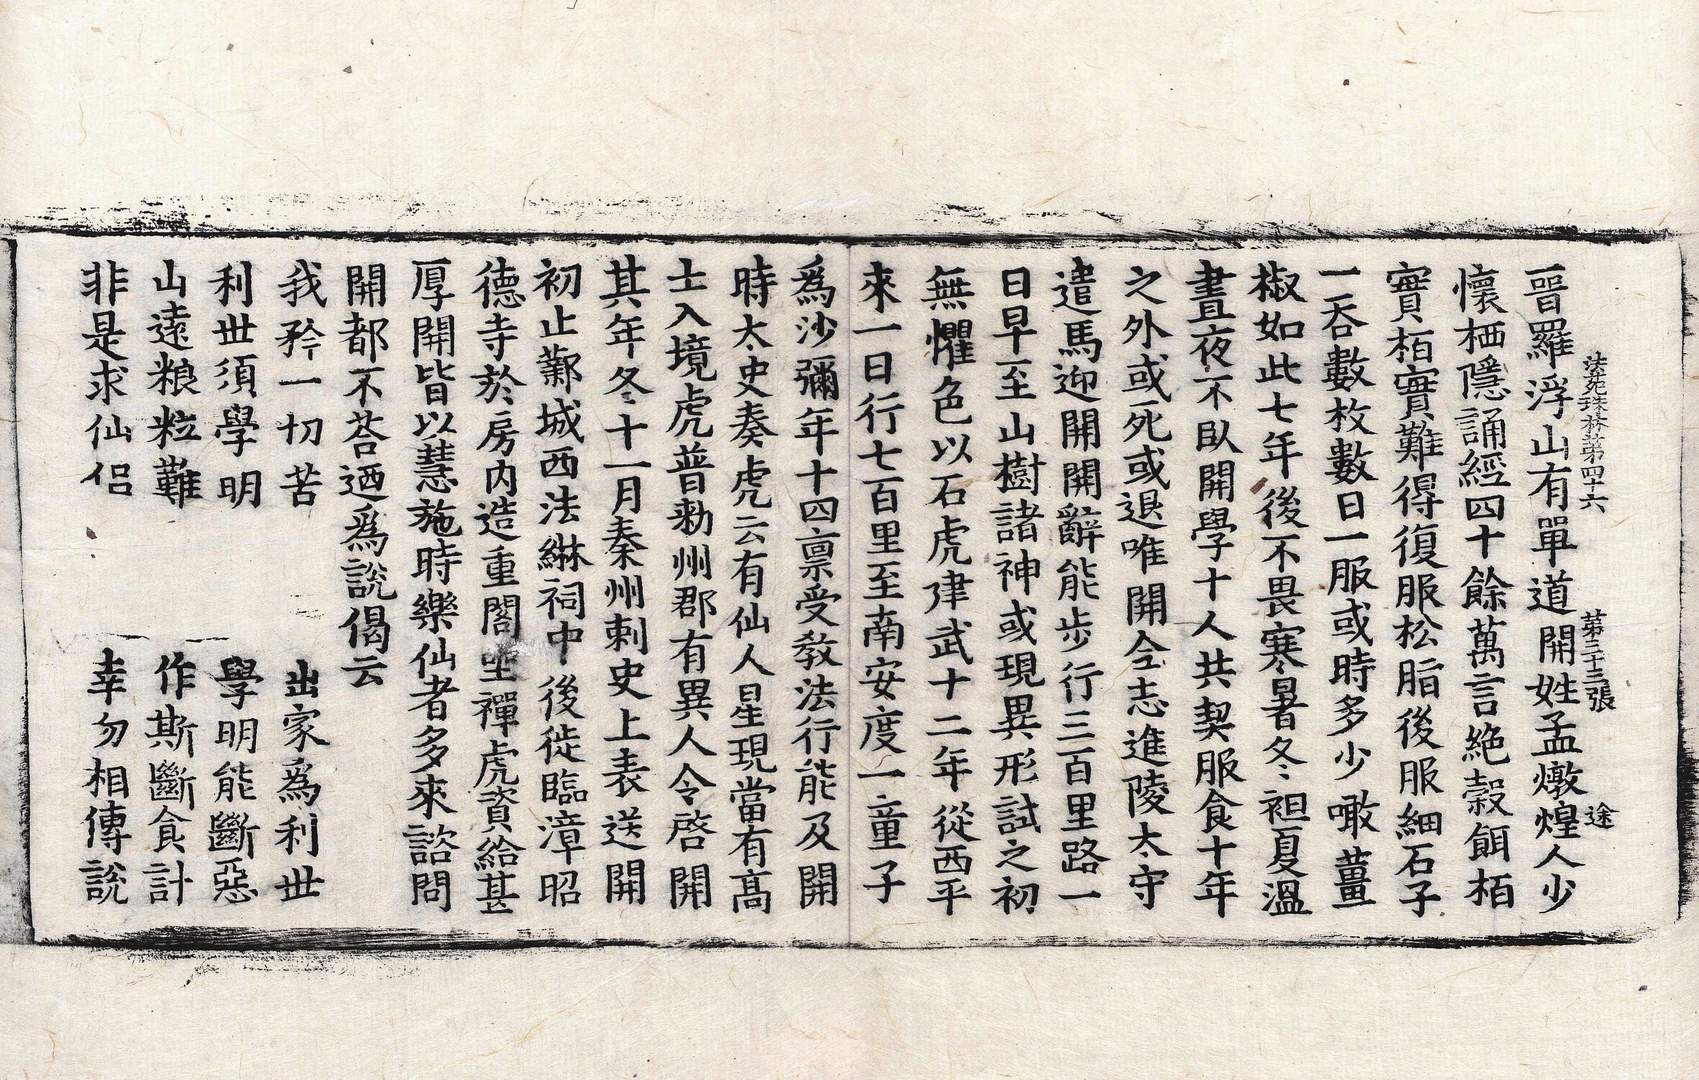 法苑珠林第四十六 第三十三張 途
晉羅浮山有單道開姓孟燉煌人少
懷栖隱誦經四十餘萬言絶糓餌栢
實栢實難得復服松脂後服細石子
一吞數枚數日一服或時多少噉薑
椒如此七年後不畏寒暑冬袒夏溫
晝夜不臥開學十人共契服食十年
之外或死或退唯開全志進陵太守
遣馬迎開開辭能步行三百里路一
日早至山樹諸神或現異形試之初
無懼色以石虎建武十二年從西平
來一日行七百里至南安度一童子
爲沙彌年十四禀受教法行能及開
時太史奏虎云有仙人星現當有高
士入境虎普勑州郡有異人令啓開
其年冬十一月秦州刺史上表送開
初止鄴城西法綝祠中後徙臨漳昭
德寺於房內造重閣坐禪虎資給甚
厚開皆以慧施時樂仙者多來諮問
開都不荅迺爲說偈云
我矜一切苦 出家爲利世
利世須學明 學明能斷惡
山遠粮粒難 作斯斷食計
非是求仙侶 幸勿相傳說